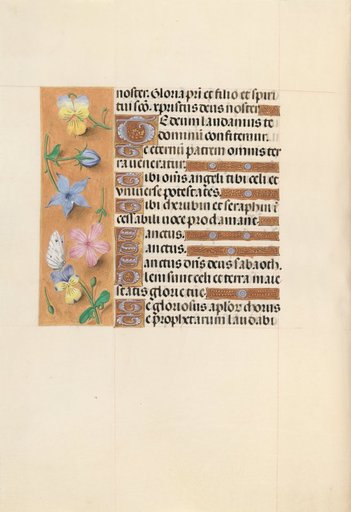 noster. Gloria pri et filio et spiri
tui sco. xpristus deus noster
Te deum laudamus te
dominū confitemur.
Te eternū patrem omnis ter
ra veneratur.
Tibi oms angeli tibi celi et
universe potestates.
Tibi cherubin et seraphin ī
cessabili voce proclamant
Sanctus.
Sanctus.
Sanctus dns deus sabaoth.
Pleni sunt celi et terra maie
statis glorie tue.
Te gloriosus aplor chorus
Te prophetarum laudabi